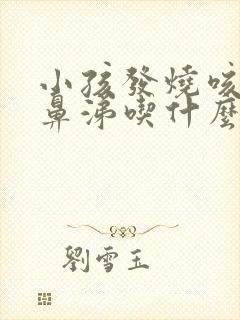 小孩發燒咳
鼻涕喫什麼
劉雪玉